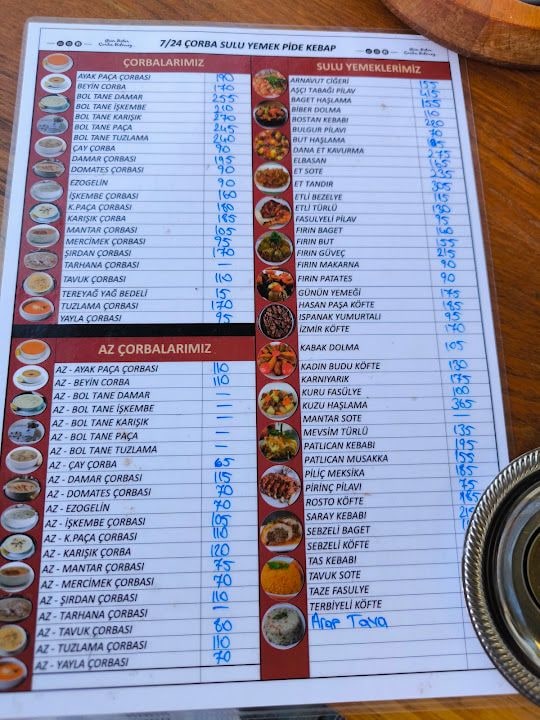 7/24 ÇORBA SULU YEMEK PİDE KEBAP
ÇORBALARIMIZ
AYAK PAÇA ÇORBASI 190
BEYİN CORBA 170
BOL TANE DAMAR 255
BOL TANE İŞKEMBE 210
BOL TANE KARIŞIK 270
BOL TANE PAÇA 245
BOL TANE TUZLAMA 240
ÇAY ÇORBA 90
DAMAR ÇORBASI 195
DOMATES ÇORBASI 90
EZOGELIN 90
İŞKEMBE ÇORBASI 160
K.PAÇA ÇORBASI 180
KARIŞIK ÇORBA 185
MANTAR ÇORBASI 105
MERCİMEK ÇORBASI 95
ŞIRDAN ÇORBASI 170
TARHANA ÇORBASI —
TAVUK ÇORBASI 110
TEREYAĞ YAĞ BEDELİ 15
TUZLAMA ÇORBASI 170
YAYLA ÇORBASI 95
AZ ÇORBALARIMIZ
AZ - AYAK PAÇA ÇORBASI 110
AZ - BEYİN CORBA 110
AZ - BOL TANE DAMAR —
AZ - BOL TANE İŞKEMBE —
AZ - BOL TANE KARIŞIK —
AZ - BOL TANE PAÇA —
AZ - BOL TANE TUZLAMA —
AZ - ÇAY ÇORBA 65
AZ - DAMAR ÇORBASI 115
AZ - DOMATES ÇORBASI 70
AZ - EZOGELIN 70
AZ - İŞKEMBE ÇORBASI 105
AZ - K.PAÇA ÇORBASI 110
AZ - KARIŞIK ÇORBA 120
AZ - MANTAR ÇORBASI 75
AZ - MERCİMEK ÇORBASI 70
AZ - ŞIRDAN ÇORBASI 110
AZ - TARHANA ÇORBASI —
AZ - TAVUK ÇORBASI 80
AZ - TUZLAMA ÇORBASI 110
AZ - YAYLA ÇORBASI 70
SULU YEMEKLERİMİZ
ARNAVUT CİĞERİ 155
AŞÇI TABAĞI PİLAV
BAGET HAŞLAMA 155
BİBER DOLMA 110
BOSTAN KEBABI
BULGUR PİLAVI 70
BUT HAŞLAMA
DANA ET KAVURMA 275
ELBASAN 165
ET SOTE 235
ET TANDIR 305
ETLİ BEZELYE 115
ETLİ TÜRLÜ 130
FASULYELİ PİLAV 95
FIRIN BAGET 160
FIRIN BUT 155
FIRIN GÜVEÇ 215
FIRIN MAKARNA 90
FIRIN PATATES 90
GÜNÜN YEMEĞİ 175
HASAN PAŞA KÖFTE 185
ISPANAK YUMURTALI 95
İZMİR KÖFTE 170
KABAK DOLMA 105
KADIN BUDU KÖFTE 130
KARNIYARIK 175
KURU FASÜLYE 100
KUZU HAŞLAMA 365
MANTAR SOTE —
MEVSİM TÜRLÜ 135
PATLICAN KEBABI 195
PATLICAN MUSAKKA 155
PİLİÇ MEKSİKA 185
PİRİNÇ PİLAVI 75
ROSTO KÖFTE 185
SARAY KEBABI
SEBZELİ BAGET
SEBZELİ KÖFTE
TAS KEBABI
TAVUK SOTE
TAZE FASULYE
TERBİYELİ KÖFTE
Arap Tava